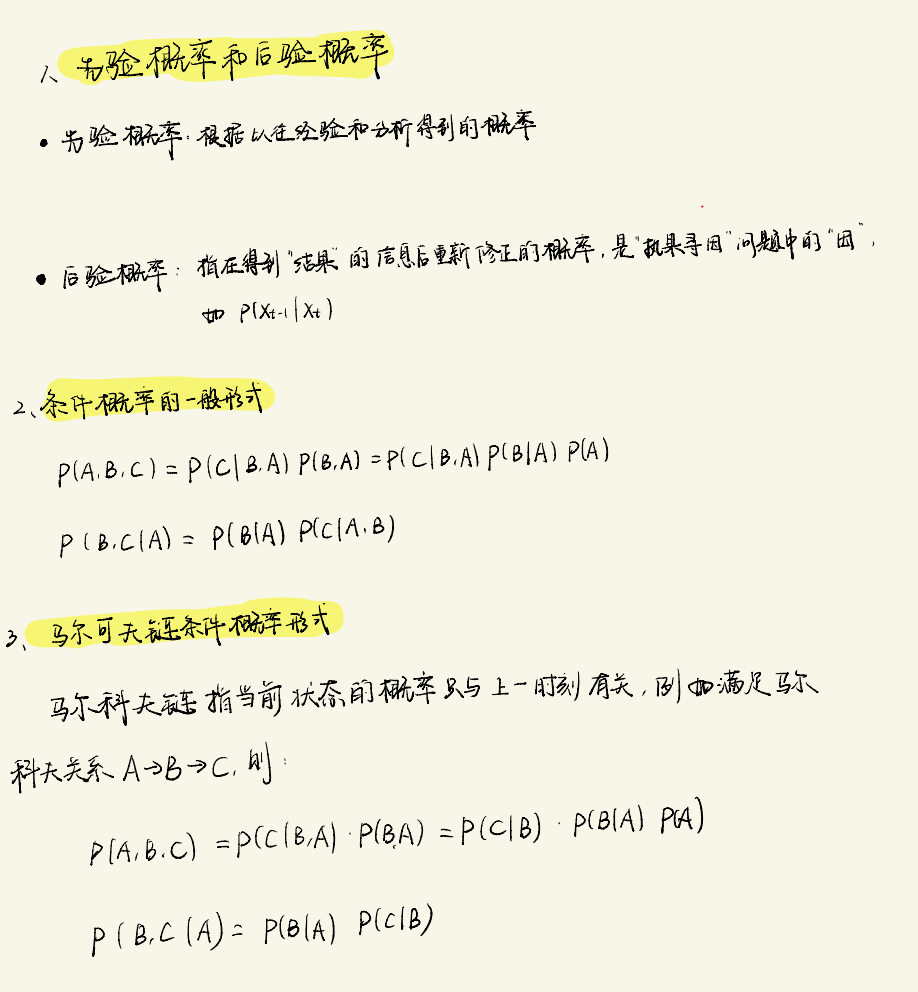 1、先验概率和后验概率
• 先验概率：根据以往经验和分析得到的概率
• 后验概率：指在得到"结果"的信息后重新修正的概率，是"执果寻因"问题中的"因"，
如 P(Xt-1|Xt)
2、条件概率的一般形式
P(A,B,C) = P(C|B,A) P(B,A) = P(C|B,A) P(B|A) P(A)
P(B,C|A) = P(B|A) P(C|A,B)
3、马尔可夫链条件概率形式
马尔科夫链指当前状态的概率只与上一时刻有关，例如满足马尔
科夫关系 A→B→C，则：
P(A,B,C) = P(C|B,A)·P(B,A) = P(C|B)·P(B|A) P(A)
P(B,C|A) = P(B|A) P(C|B)